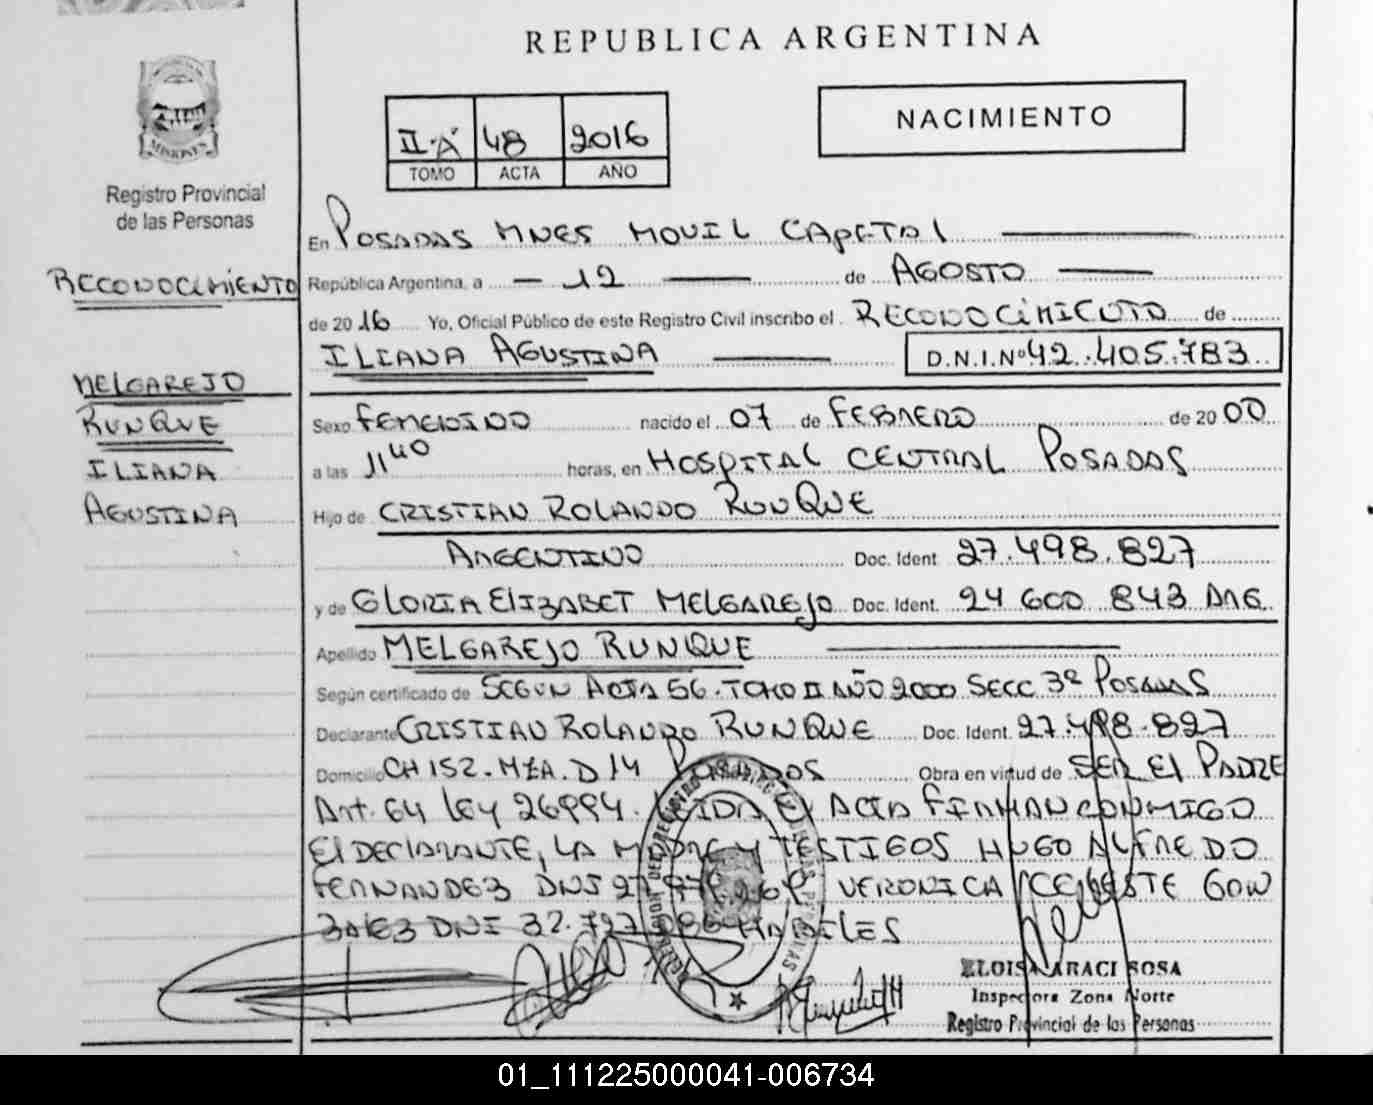 REPUBLICA ARGENTINA
MISIONES
Registro Provincial
de las Personas
II-A 48 2016
TOMO ACTA AÑO
NACIMIENTO
RECONOCIMIENTO
MELGAREJO
RUNQUE
ILIANA
AGUSTINA
En POSADAS MNES MOVIL CAPITAL
República Argentina, a 12 de AGOSTO
de 2016 Yo, Oficial Público de este Registro Civil inscribo el RECONOCIMIENTO de
ILIANA AGUSTINA D.N.I.Nº 42.405.783
Sexo FEMENINO nacido el 07 de FEBRERO de 2000
a las 11 40 horas, en HOSPITAL CENTRAL POSADAS
Hijo de CRISTIAN ROLANDO RUNQUE
ARGENTINO Doc. Ident. 27.498.827
y de GLORIA ELIZABET MELGAREJO Doc. Ident. 24 600 843 ARG.
Apellido MELGAREJO RUNQUE
Según certificado de SEGUN ACTA 56. TOMO II AÑO 2000 SECC 3ª POSADAS
Declarante CRISTIAN ROLANDO RUNQUE Doc. Ident. 27.498.827
Domicilio CH 152. MZA. D 14 POSADAS Obra en virtud de SER El PADRE
Art. 64 ley 26994. LEIDA El ACTA FIRMAN CONMIGO
El DECLARANTE, LA MADRE Y TESTIGOS HUGO ALFREDO
FERNANDEZ DNI VERONICA CELESTE GON
ZALEZ DNI 32.727.086 HABILES
ELOISA ARACI SOSA
Inspectora Zona Norte
Registro Provincial de las Personas
01_111225000041-006734